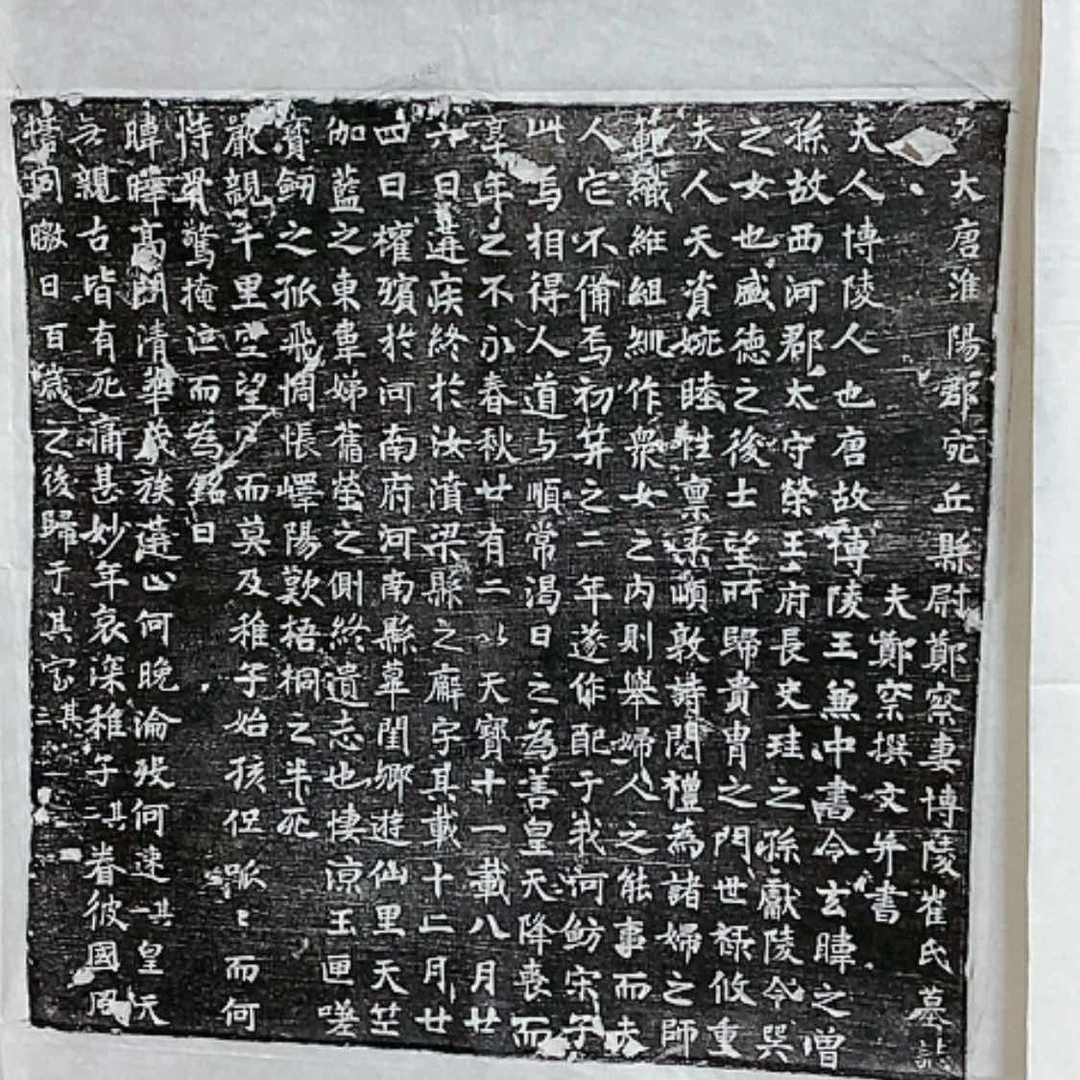 大唐淮陽郡宛丘縣尉鄭察妻博陵崔氏墓誌
夫鄭察撰文并書
夫人博陵人也唐故博陵王兼中書令玄暐之曾
孫故西河郡太守榮王府長史珪之孫獻陵令巽
之女也盛德之後士望所歸貴胄之門世祿攸重
夫人天資婉睦性稟柔順敦詩閱禮為諸婦之師
範織維組紃作眾女之內則舉婦人之能事而夫
人它不備焉初笄之二年遂作配于我何魴宋子
此焉相得人道与順常渴日之為善皇天降喪而
享年之不永春秋廿有二以天寶十一載八月廿
六日遘疾終於汝濆梁縣之廨宇其載十二月廿
四日權殯於河南府河南縣蕈閏鄉遊仙里天竺
伽藍之東韋娣舊塋之側終遺志也悽涼玉匣嗟
寶劒之孤飛惆悵嶧陽歎梧桐之半死
嚴親千里空望而莫及稚子始孩但呱〻而何
恃骨驚掩泣而為銘曰
暐曄高門清華茂族蓬山何晚淪歿何速其一皇天
無親古皆有死痛甚妙年哀深稚子其二眷彼國風
指同曒日百歲之後歸于其室其三